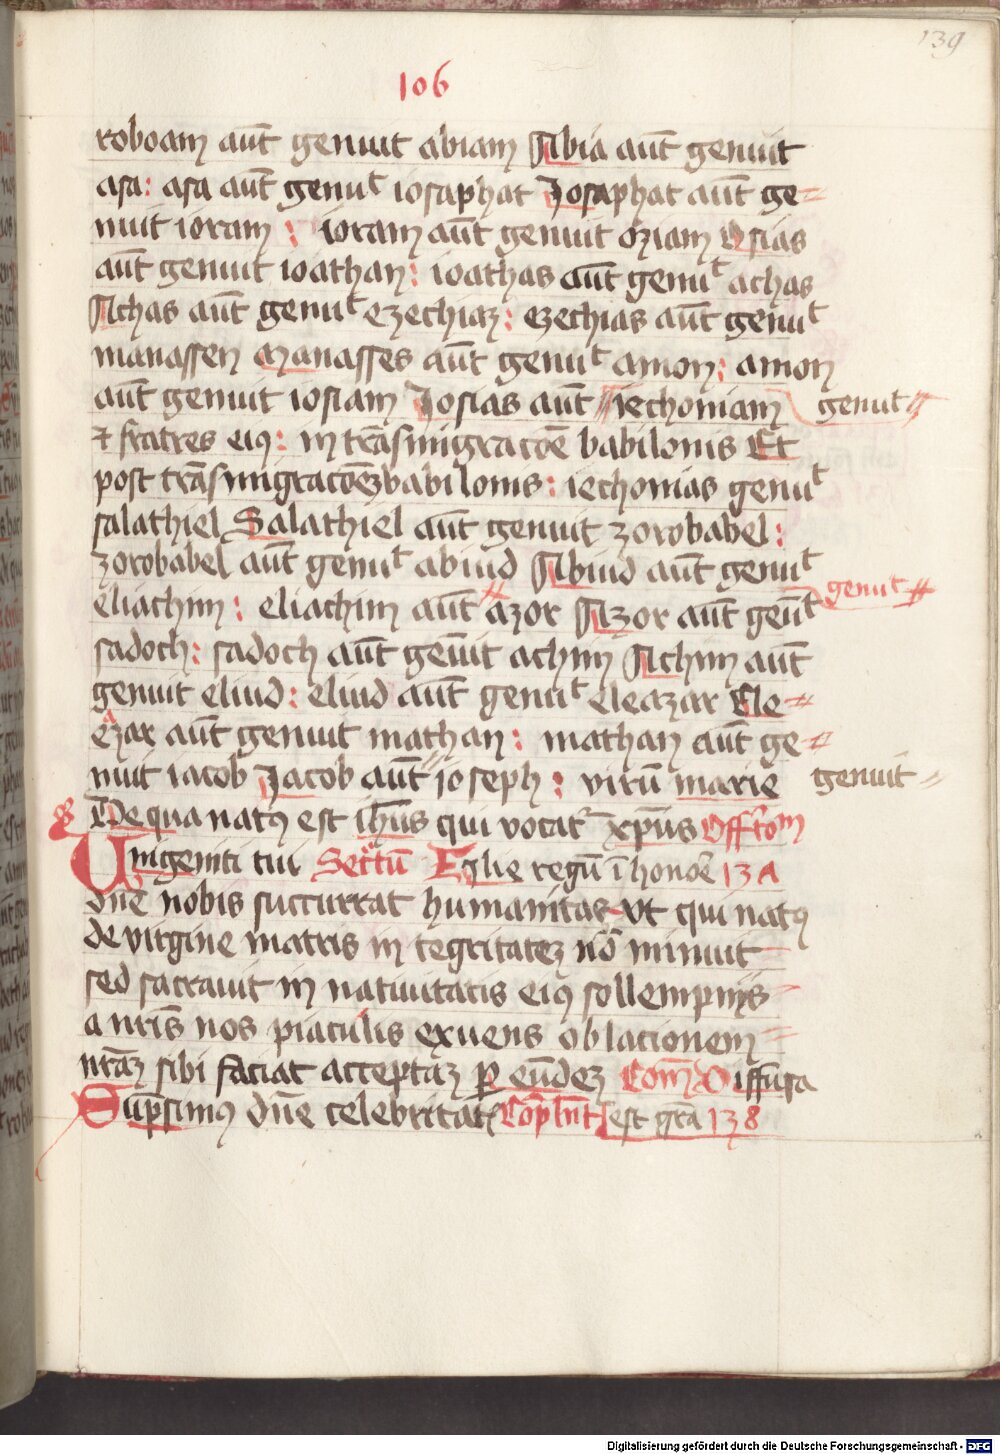 139
106
roboam aut̄ genuit abiam Abia aut̄ genuit
asa: asa aut̄ genuͭ iosaphat Josaphat aut̄ ge=
nuit ioram : ioram aut̄ genuit oziam Osias
aut̄ genuit ioathan: ioathas aut̄ genuͭ achas
Achas aut̄ genuͭ ezechiaꝫ: ezechias aut̄ genuͭ
manassen Manasses aut̄ genuͭ amon: amon
aut̄ genuit iosiam Josias aut̄ // iechoniam genuit //
⁊ fratres eiꝰ: in trāsmigracōe babilonis Et
post trāsmigracōeꝫ babilonis: iechonias genuͭ
salathiel Salathiel aut̄ genuit zorobabel:
zorobabel aut̄ genuͭ abiud Abiud aut̄ genuͭ
eliachim: eliachim aut̄ // azor Azor aut̄ gen̄ͭ genuit //
sadoch: sadoch aut̄ gen̄it achim Achim aut̄
genuit eliud: eliud aut̄ genuͭ eleazar Ele=
azar aut̄ genuit mathan: mathan aut̄ ge=
nuit iacob Jacob aut̄ // ioseph: virū marie genuit //
De qua natꝰ est ihūs qui vocatᷣ xp̄us Off̄tom
Unigeniti tui Sec̄tū Eglie regū ī honōe 138
dn̄e nobis succurrat humanitas vt qui natꝰ
de virgine matris in tegritateꝫ nō minuit
sed sacrauit in natiuitatis eiꝰ sollempnijs
a nr̄is nos piaculis exuens oblacionem
nr̄aꝫ sibi faciat acceptaꝫ ꝑ eūdeꝫ Com̄ Diffusa
Sūpsimꝰ dn̄e celebritat Cōplnt est gr̄a 138